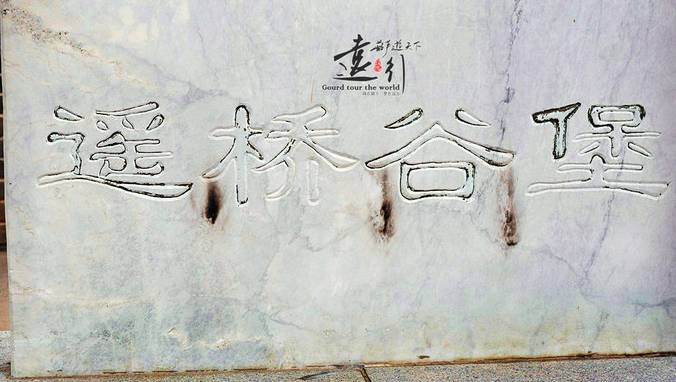 葫芦遊天下
遠引
Gourd tour the world
遥桥谷堡